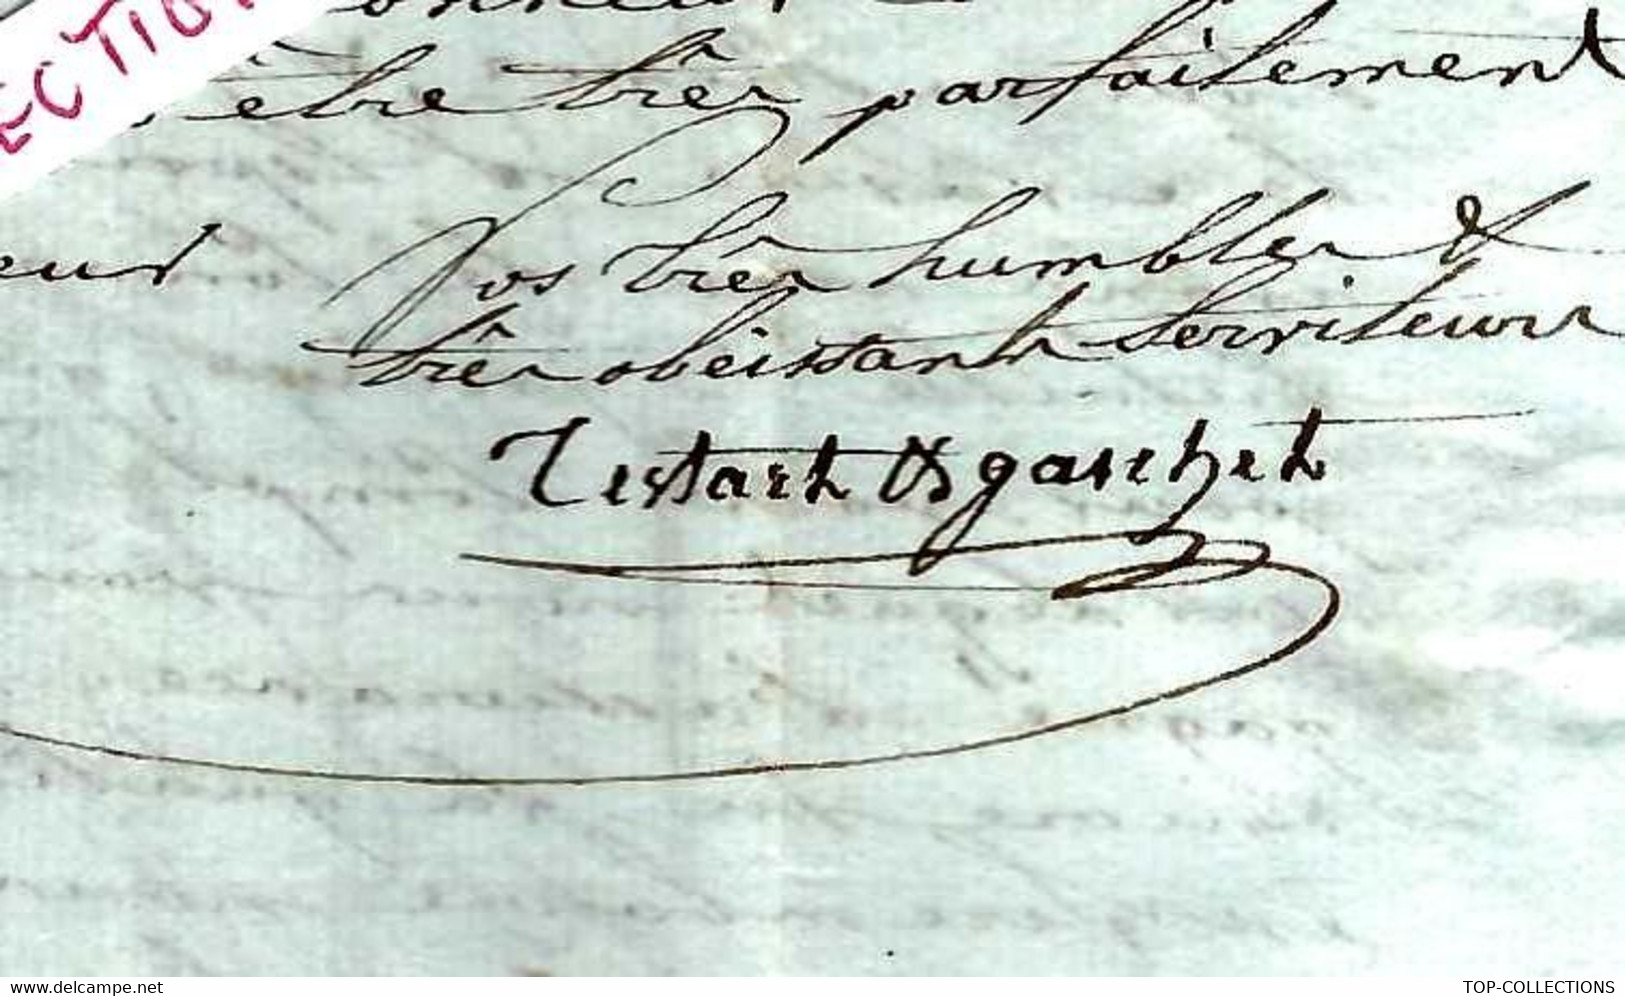 ECTION
être très parfaitement
Vos très humbles &
très obeissants serviteurs
Testart & Gaschet
Agrandir l'image
TOP-COLLECTIONS